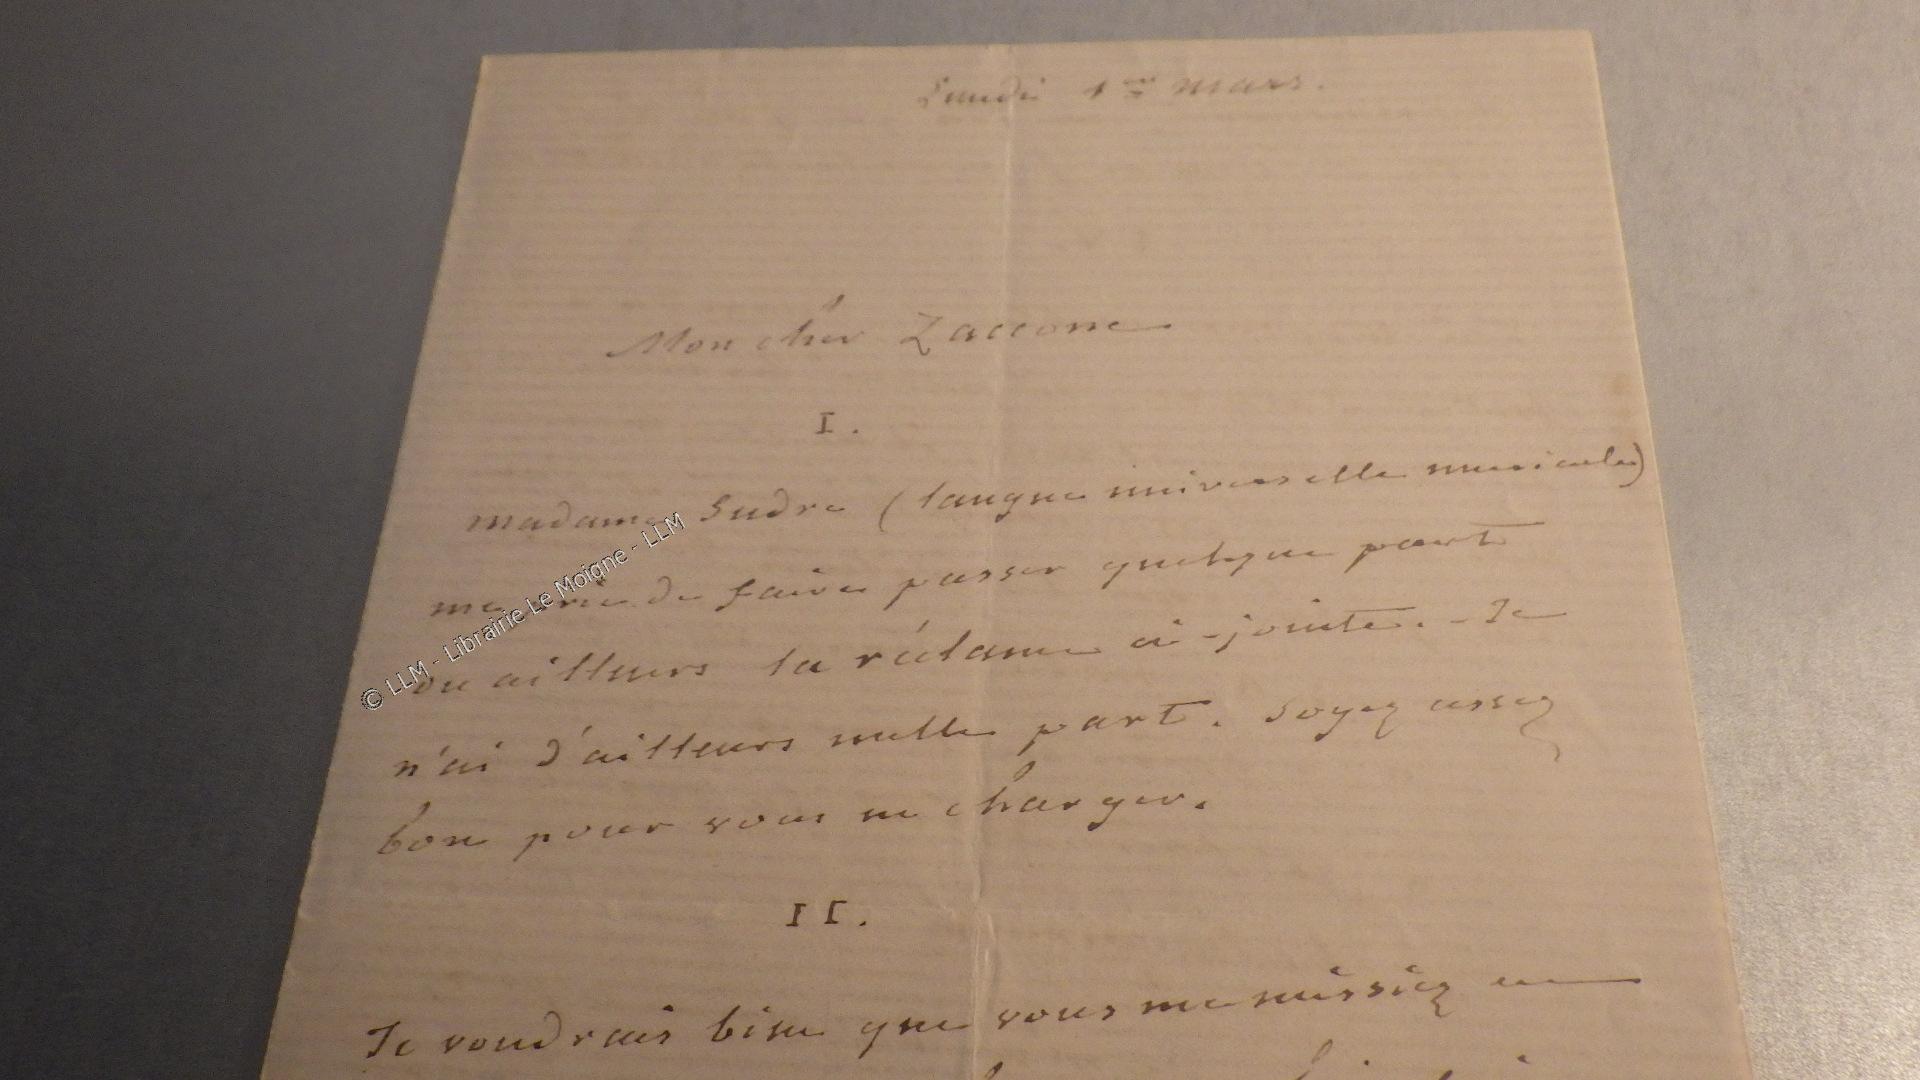 Lundi 1er mars.
Mon cher Zaccone
I.
Madame Sudre (langue universelle musicale)
me prie de faire passer quelque part
ou ailleurs la réclame ci-jointe. - Je
n'ai d'ailleurs nulle part. Soyez assez
bon pour vous en charger.
II.
Je voudrais bien que vous me missiez en
© LLM - Librairie Le Moigne - LLM